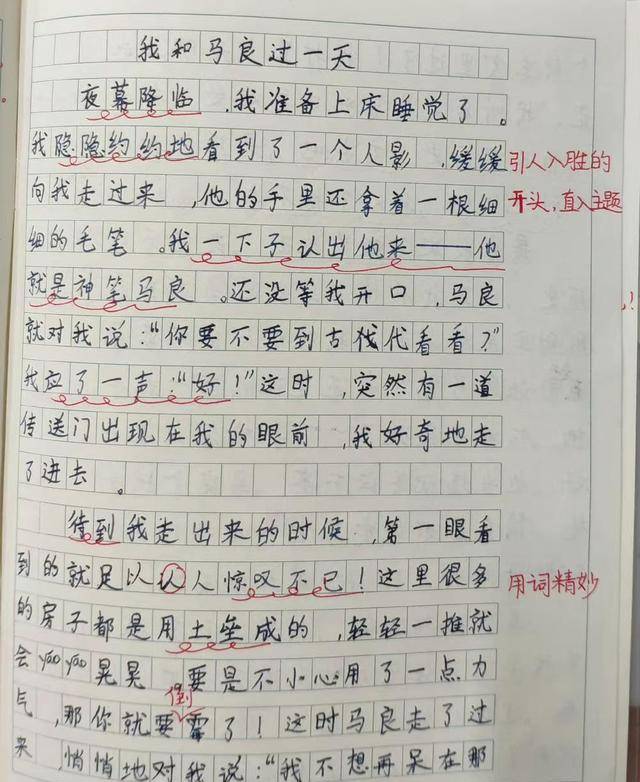 我和马良过一天
夜幕降临,我准备上床睡觉了。
我隐隐约约地看到了一个人影,缓缓
引人入胜的
向我走过来,他的手里还拿着一根细
开头,直入主题
细的毛笔。我一下子认出他来——他
就是神笔马良。还没等我开口,马良
就对我说:“你要不要到古代看看?”
我应了一声:“好!”这时,突然有一道
传送门出现在我的眼前,我好奇地走
了进去。
待到我走出来的时候,第一眼看
到的就足以认人惊叹不已!这里很多
用词精妙
的房子都是用土垒成的,轻轻一推就
会yáoyáo晃晃,要是不小心用了一点力
倒
气,那你就要霉了!这时马良走了过
来,悄悄地对我说:“我不想再呆在那